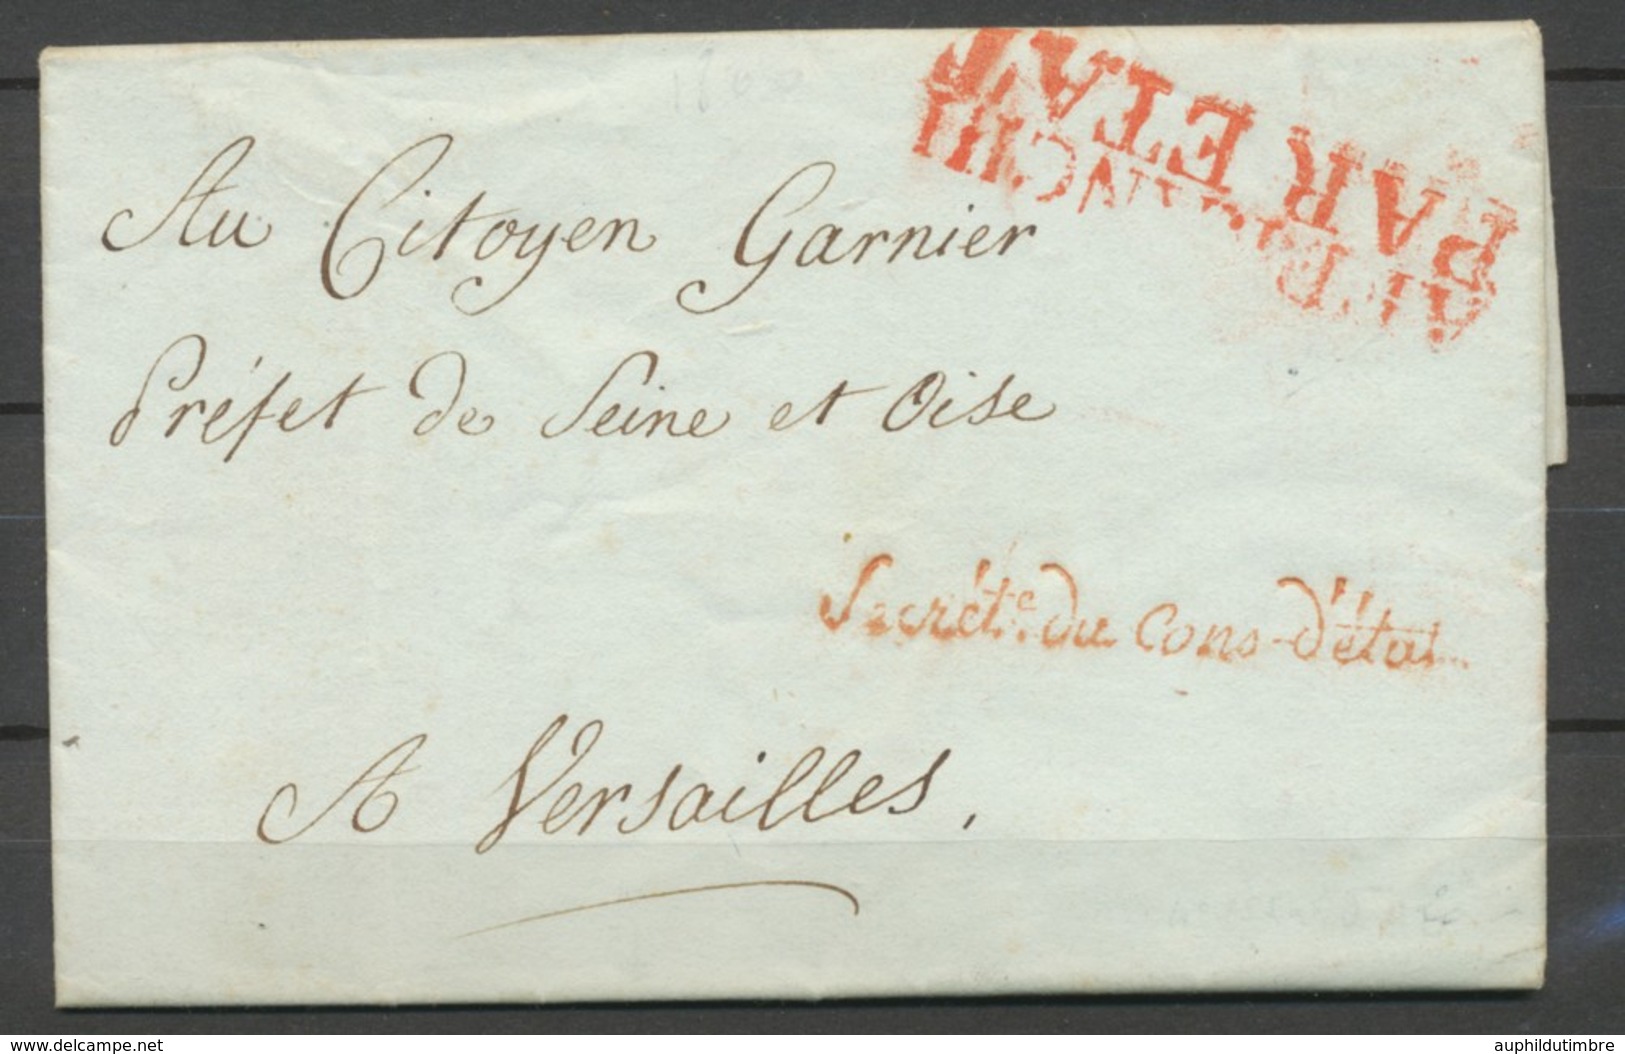 PAR ETAT
Au Citoyen Garnier
Préfet de Seine et Oise
Secrét.e du Cons. d'état
A Versailles,
www.delcampe.net
auphildutimbre